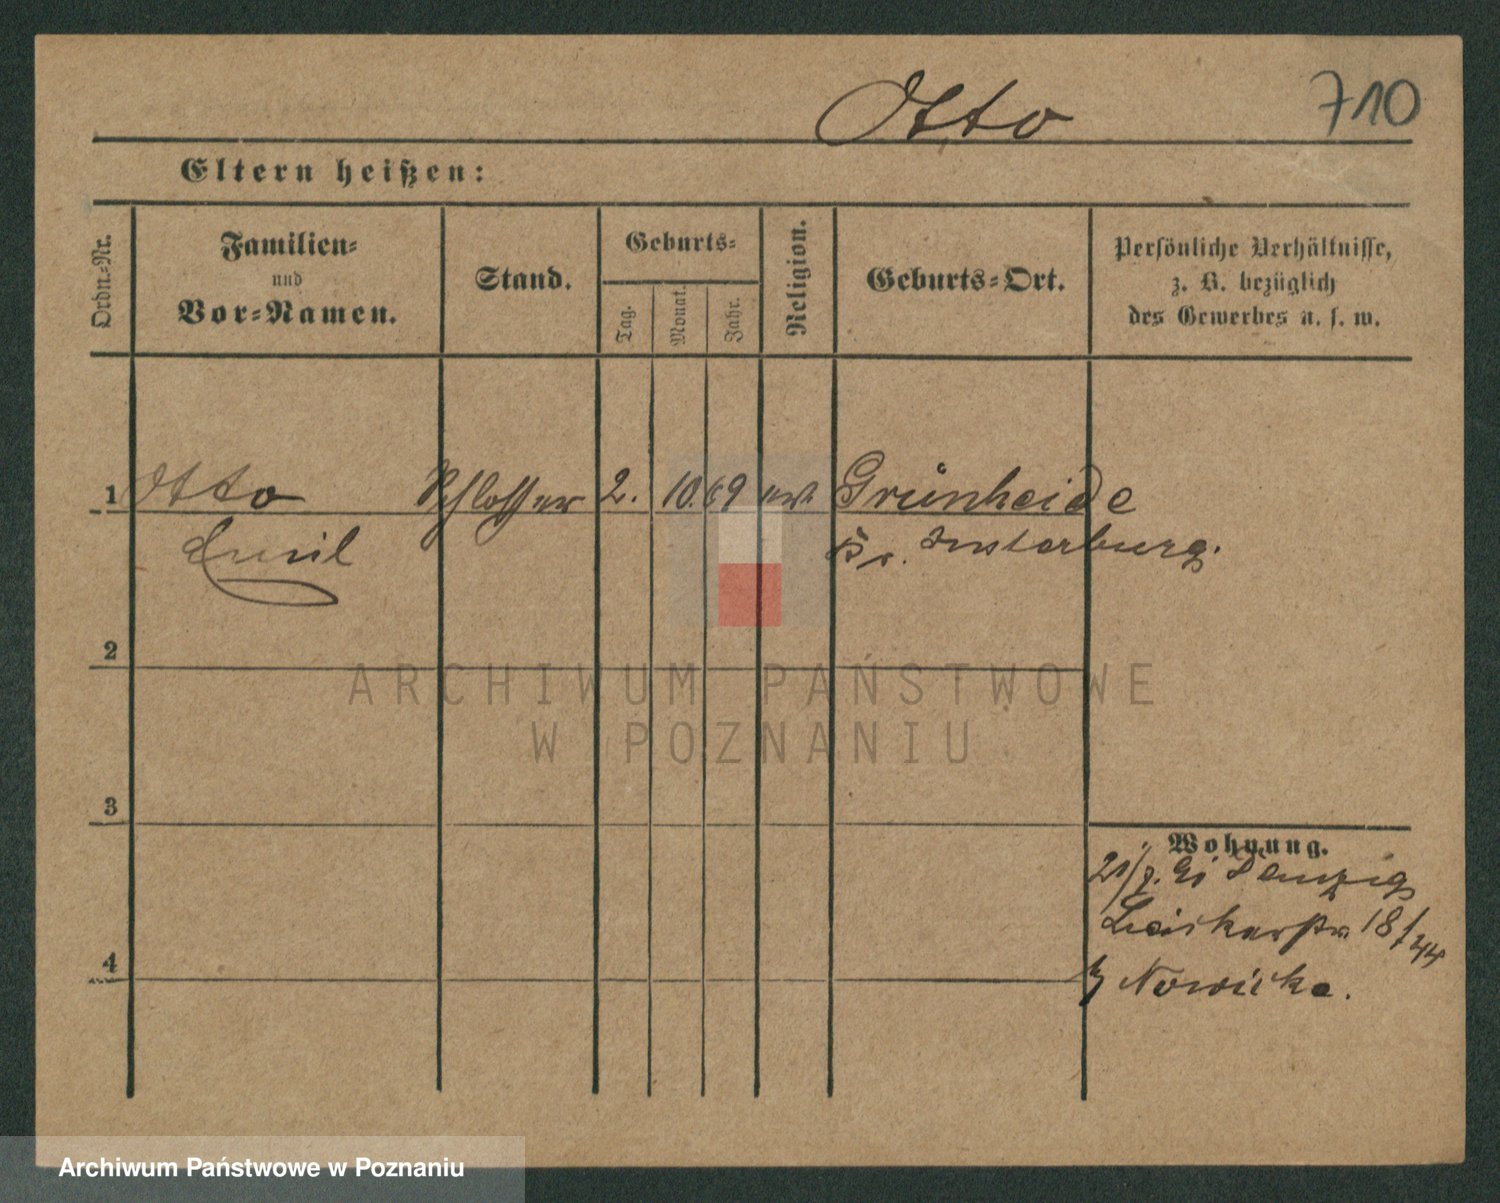 Otto 710
Eltern heißen:
Ordn.-Nr.
Familien-
und
Vor-Namen.
Stand.
Geburts-
Tag.
Monat.
Jahr.
Religion.
Geburts-Ort.
Persönliche Verhältnisse,
z. B. bezüglich
des Gewerbes u. s. w.
1 Otto Schlosser 2. 10. 69 ev. Grünheide
Emil Kr. Insterburg.
2
ARCHIWUM PAŃSTWOWE
W POZNANIU
3
Wohnung.
Danzig
18/
4
Nowicka.
Archiwum Państwowe w Poznaniu